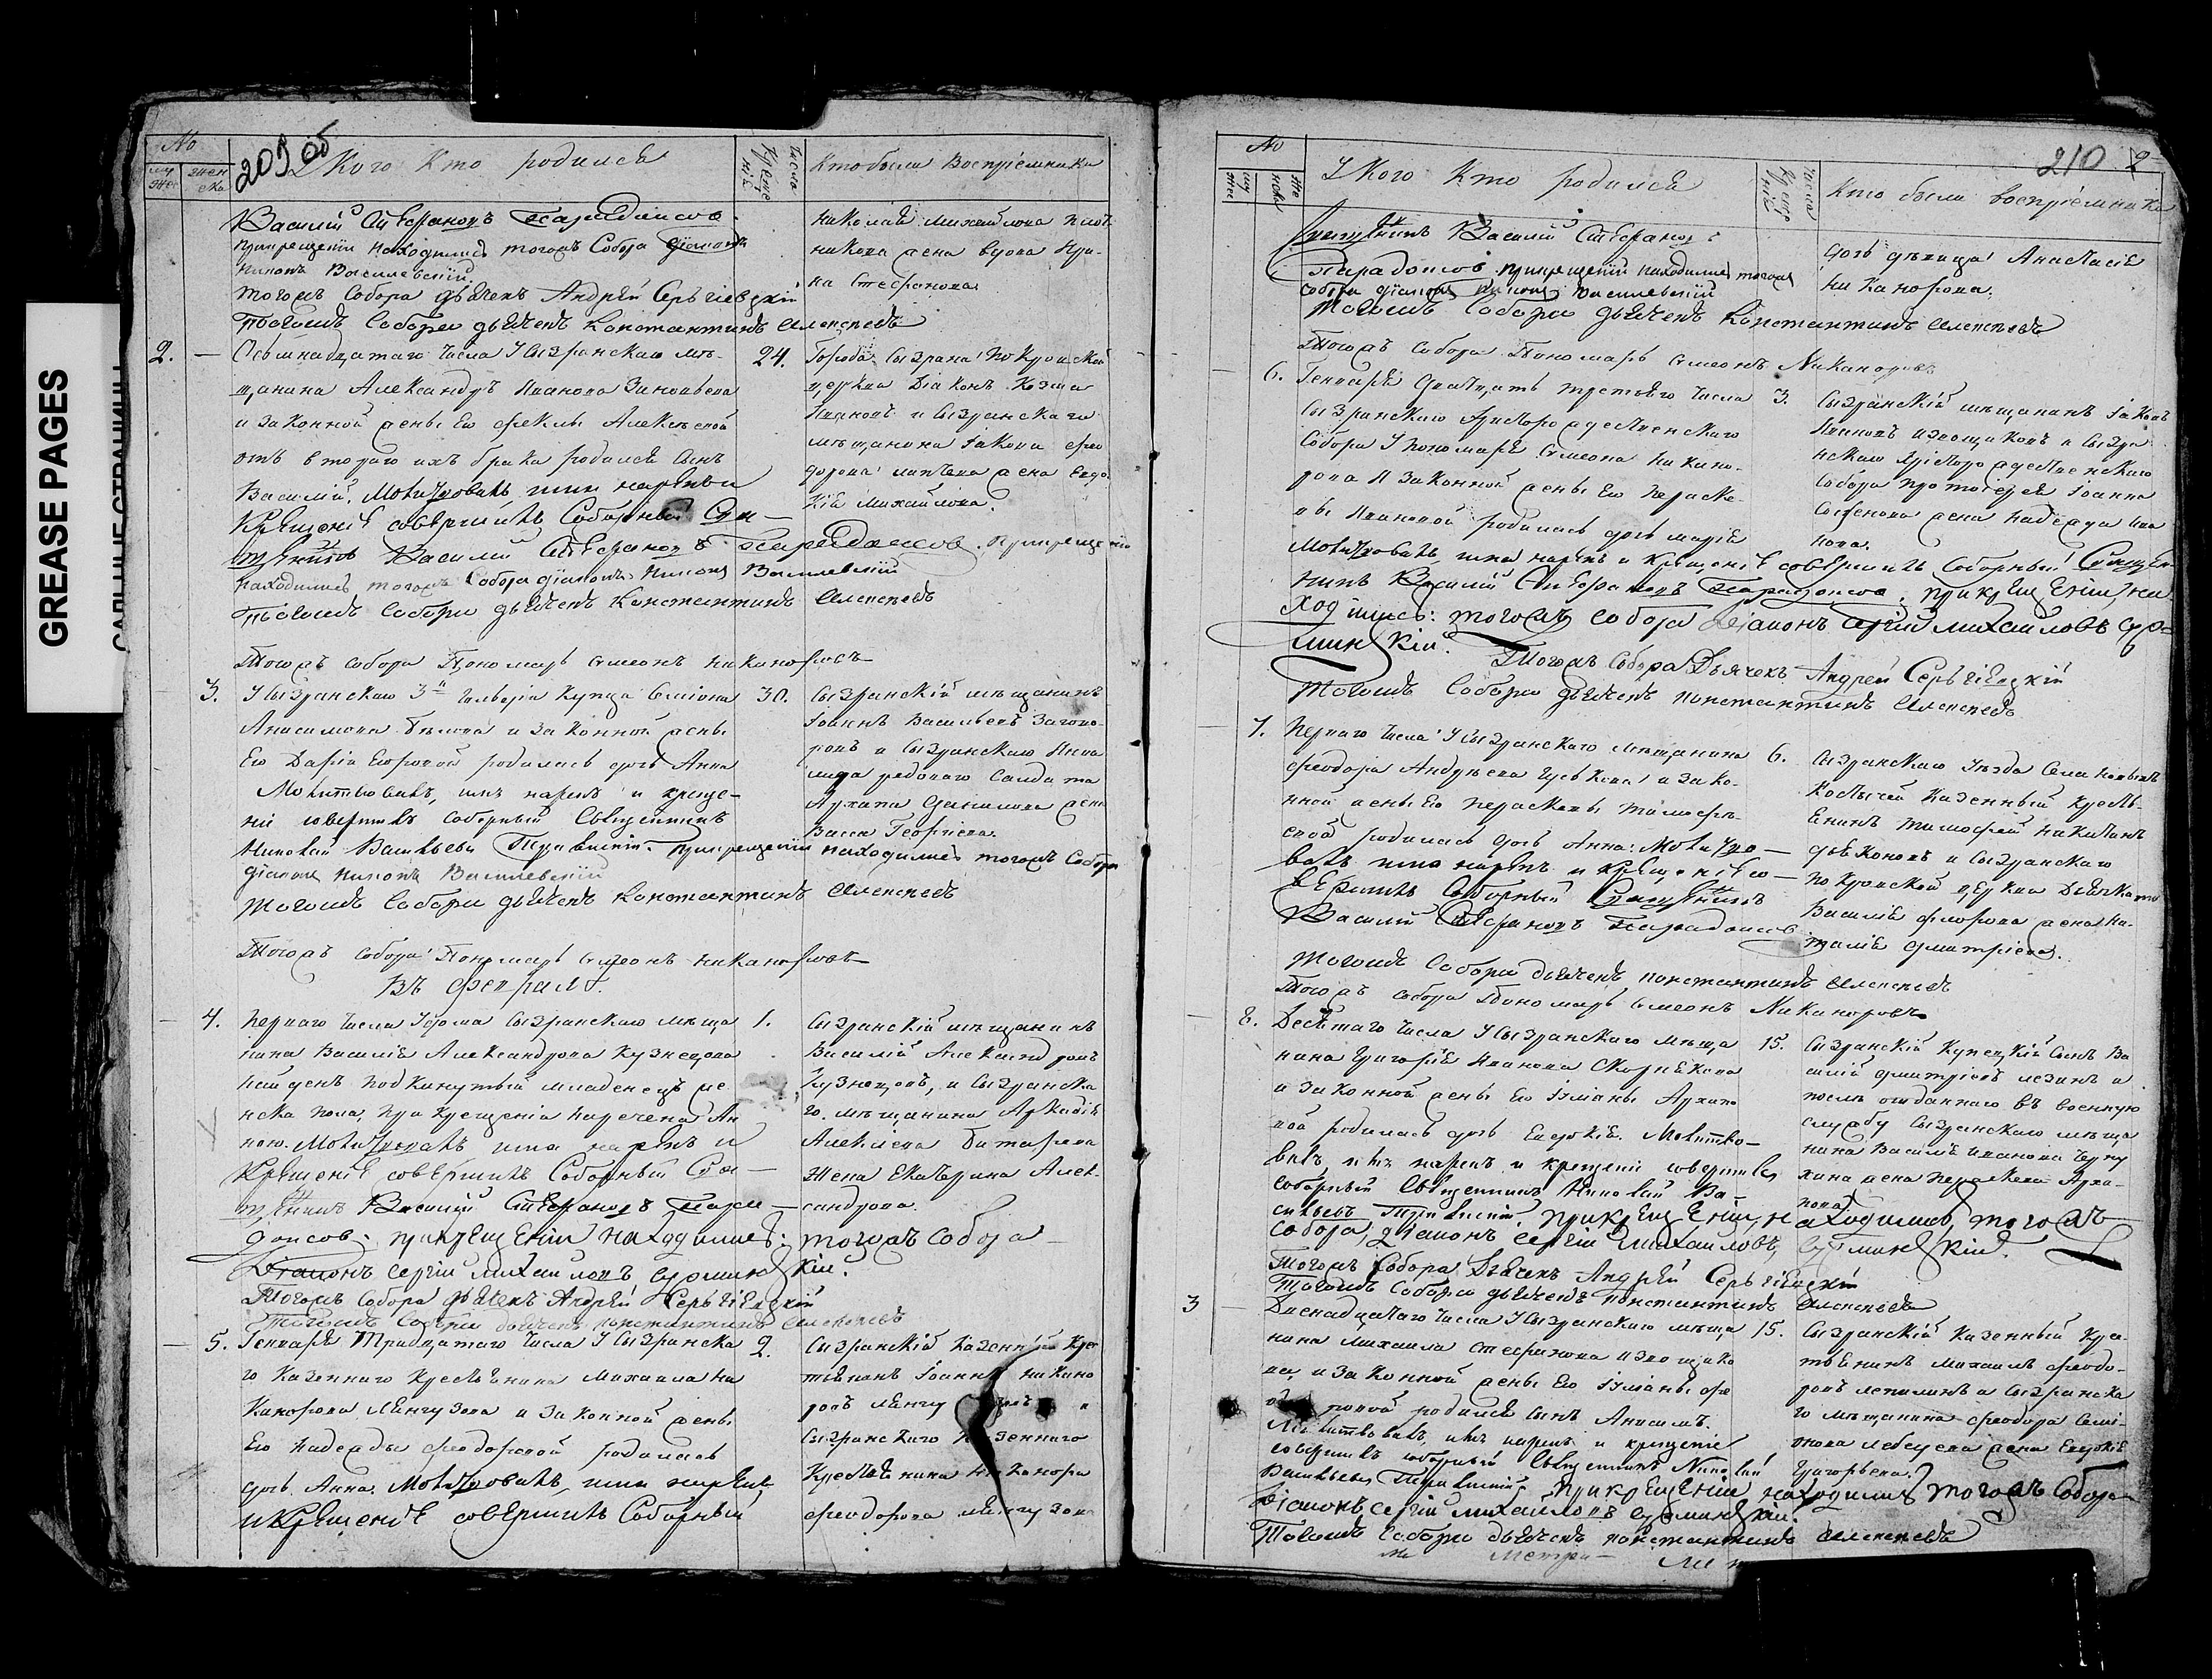 GREASE PAGES
209 об
No
муж
женска
У Кого Кто родился
Числа Крещение
Кто были Восприемники
Василий Стефановъ Парадоксовъ
при крещеніи находились тогожъ Собора діаконъ
Никонъ Василевскій
тогожъ Собора дьячекъ Андрей Сергіевскій
тогожъ Собора дьячекъ Константинъ Алексеевъ
Николая Михайлова
жена вдова Ири-
на Стефанова
2. — Осьмнадцатаго числа У Сызранскаго мѣ-
щанина Александръ Иванова Зиновьева
и законной жены Его Феклы Алексѣевой
отъ втораго ихъ брака родился сынъ
Василій. Молитвовалъ, имя нарекъ и
Крещеніе совершилъ Соборный Свя-
щенникъ Василий Стефановъ Парадоксовъ. при крещеніи
находились тогожъ Собора діаконъ Никонъ Василевскій
тогожъ Собора дьячекъ Константинъ Алексеевъ
Тогожъ собора Пономарь Симеонъ Никаноровъ
24.
Города Сызрана Покровской
церкви Діаконъ Козма
Ивановъ и Сызранскаго
мѣщанина Іакова Фео
дорова жена Евдо
кія Михайлова.
3. У Сызранскаго 3й гильдіи Купца Симіона
Анисимова Бѣлова и законной жены
Его Даріи Егоровой родилась дочь Анна
Молитвовалъ, имя нарекъ и креще-
ніе совершилъ соборный Священникъ
Николай Васильевъ при крещеніи находились тогожъ Собора
діаконъ Никонъ Василевскій
тогожъ Собора дьячекъ Константинъ Алексеевъ
Тогожъ собора Пономарь Симеонъ Никаноровъ
30.
Сызранскій мѣщанинъ
Іоаннъ Васильевъ
и Сызранскаго Инва
лида рядоваго Салдата
Архипа Данилова жена
Васса Георгіева.
Въ Февралѣ.
4. Перваго числа У дома Сызранскаго мѣща
нина Василія Александрова Кузнецова
найденъ подкинутый младенецъ же
нска пола, при крещеніи наречена Ан
ною. Молитвовалъ имя нарекъ и
Крещеніе совершилъ Соборный Свя-
щенникъ Василий Стефановъ Пара-
доксовъ. при крещеніи находились: тогожъ Собора
Діаконъ Сергій Михайловъ Сурминскій.
Тогожъ Собора дьячекъ Андрей Сергіевскій
Тогожъ Собора дьячекъ Константинъ Алексеевъ
1.
Сызранскій мѣщанинъ
Василій Александровъ
Кузнецовъ, и Сызранска
го мѣщанина Аркадія
Алексѣева Батарова
жена Екатерина Алек-
сандрова.
5. Генваря Тридцатаго числа У Сызранска
го Казеннаго Крестьянина Михаила Ни
канорова Лянгузова и законной жены
Его Надежды Феодоровой родилась
дочь Анна. Молитвовалъ, имя нарекъ
и Крещеніе совершилъ Соборный
2.
Сызранскій Казенный Крес
тьянинъ Іоаннъ Никано
ровъ и
Сызранскаго Казеннаго
Крестьянина Никанора
Феодорова Лянгузова
210
No
муж
женска
У Кого Кто родился
Числа Крещение
Кто были восприемники
Священникъ Василий Стефановъ
Парадоксовъ при крещеніи находились тогожъ
собора діаконъ Никонъ Василевскій
тогожъ Собора дьячекъ Константинъ Алексеевъ
Тогожъ Собора Пономарь Симеонъ Никаноровъ
дочь дѣвица Анастасія
Никанорова.
6. Генваря Двадцать третьяго числа
Сызранскаго Христорождественскаго
Собора У пономаря Симеона Никано-
рова и законной жены Его Параске-
вы Ивановой родилась дочь Марія
Молитвовалъ, имя нарекъ и Крещеніе совершилъ Соборный Священ
никъ Василий Стефановъ Парадоксовъ. при крещеніи, на
ходились: тогожъ собора Діаконъ Сергій Михайловъ Сур-
минскій.
Тогожъ Собора Дьячекъ Андрей Сергіевскій
Тогожъ Собора дьячекъ Константинъ Алексеевъ
3.
Сызранскій мѣщанинъ Іаковъ
Ивановъ Извощиковъ и Сызра
нскаго Христорождественскаго
Собора протоіерея Іоанна
Семенова жена Надежда Ива
нова.
7. Перваго числа У Сызранскаго мѣщанина
Феодора Андреева Гуськова и зако-
нной жены Его Параскевы Тимофѣ-
евой родилась дочь Анна: Молитво-
валъ имя нарекъ и Крещеніе со-
вершилъ Соборный Священникъ
Василий Стефановъ Парадоксовъ
тогожъ Собора дьячекъ Константинъ Алексеевъ
Тогожъ собора Пономарь Симеонъ Никаноровъ
6.
Сызранскаго Уѣзда Села
Костычей Казенный Кресть-
янинъ Тимофей Никитинъ
Дьяконовъ и Сызранскаго
Покровской церкви Дьячка
Василія Флорова жена На-
талія Дмитріева.
8. Десятаго числа У Сызранскаго мѣща
нина Григорія Иванова Скорнякова
и законной жены Его Іуліаны Архипо
вой родилась дочь Евдокія. Молитво-
валъ, имя нарекъ и крещеніе совершилъ
Соборный Священникъ Николай Ва-
сильевъ при крещеніи, находились, тогожъ
собора, діаконъ Сергій Михайловъ, Сурминскій.
Тогожъ Собора Дьячекъ Андрей Сергіевскій
Тогожъ Собора дьячекъ Константинъ Алексеевъ
15.
Сызранскій Купецкій Сынъ Ва
силій Дмитріевъ и
отданнаго въ военную
службу Сызранскаго мѣща
нина Василія Иванова
жена Параскева Архи-
пова
3 — Двенадцатаго числа У Сызранскаго мѣща
нина Михаила Стефанова Извощико
ва, и законной жены Его Іуліаны
родился сынъ Анисимъ.
Молитвовалъ, имя нарекъ и крещеніе
совершилъ соборный Священникъ Николай
Васильевъ при крещеніи находились тогожъ Собора
Діаконъ Сергій Михайловъ Сурминскій.
Тогожъ Собора дьячекъ Константинъ Алексеевъ
15.
Сызранскій Казенный Крес-
тьянинъ Михаилъ Феодо-
ровъ и Сызранска
го мѣщанина Феодора Семі-
онова Лебедева жена Евдокія
Григорьева.